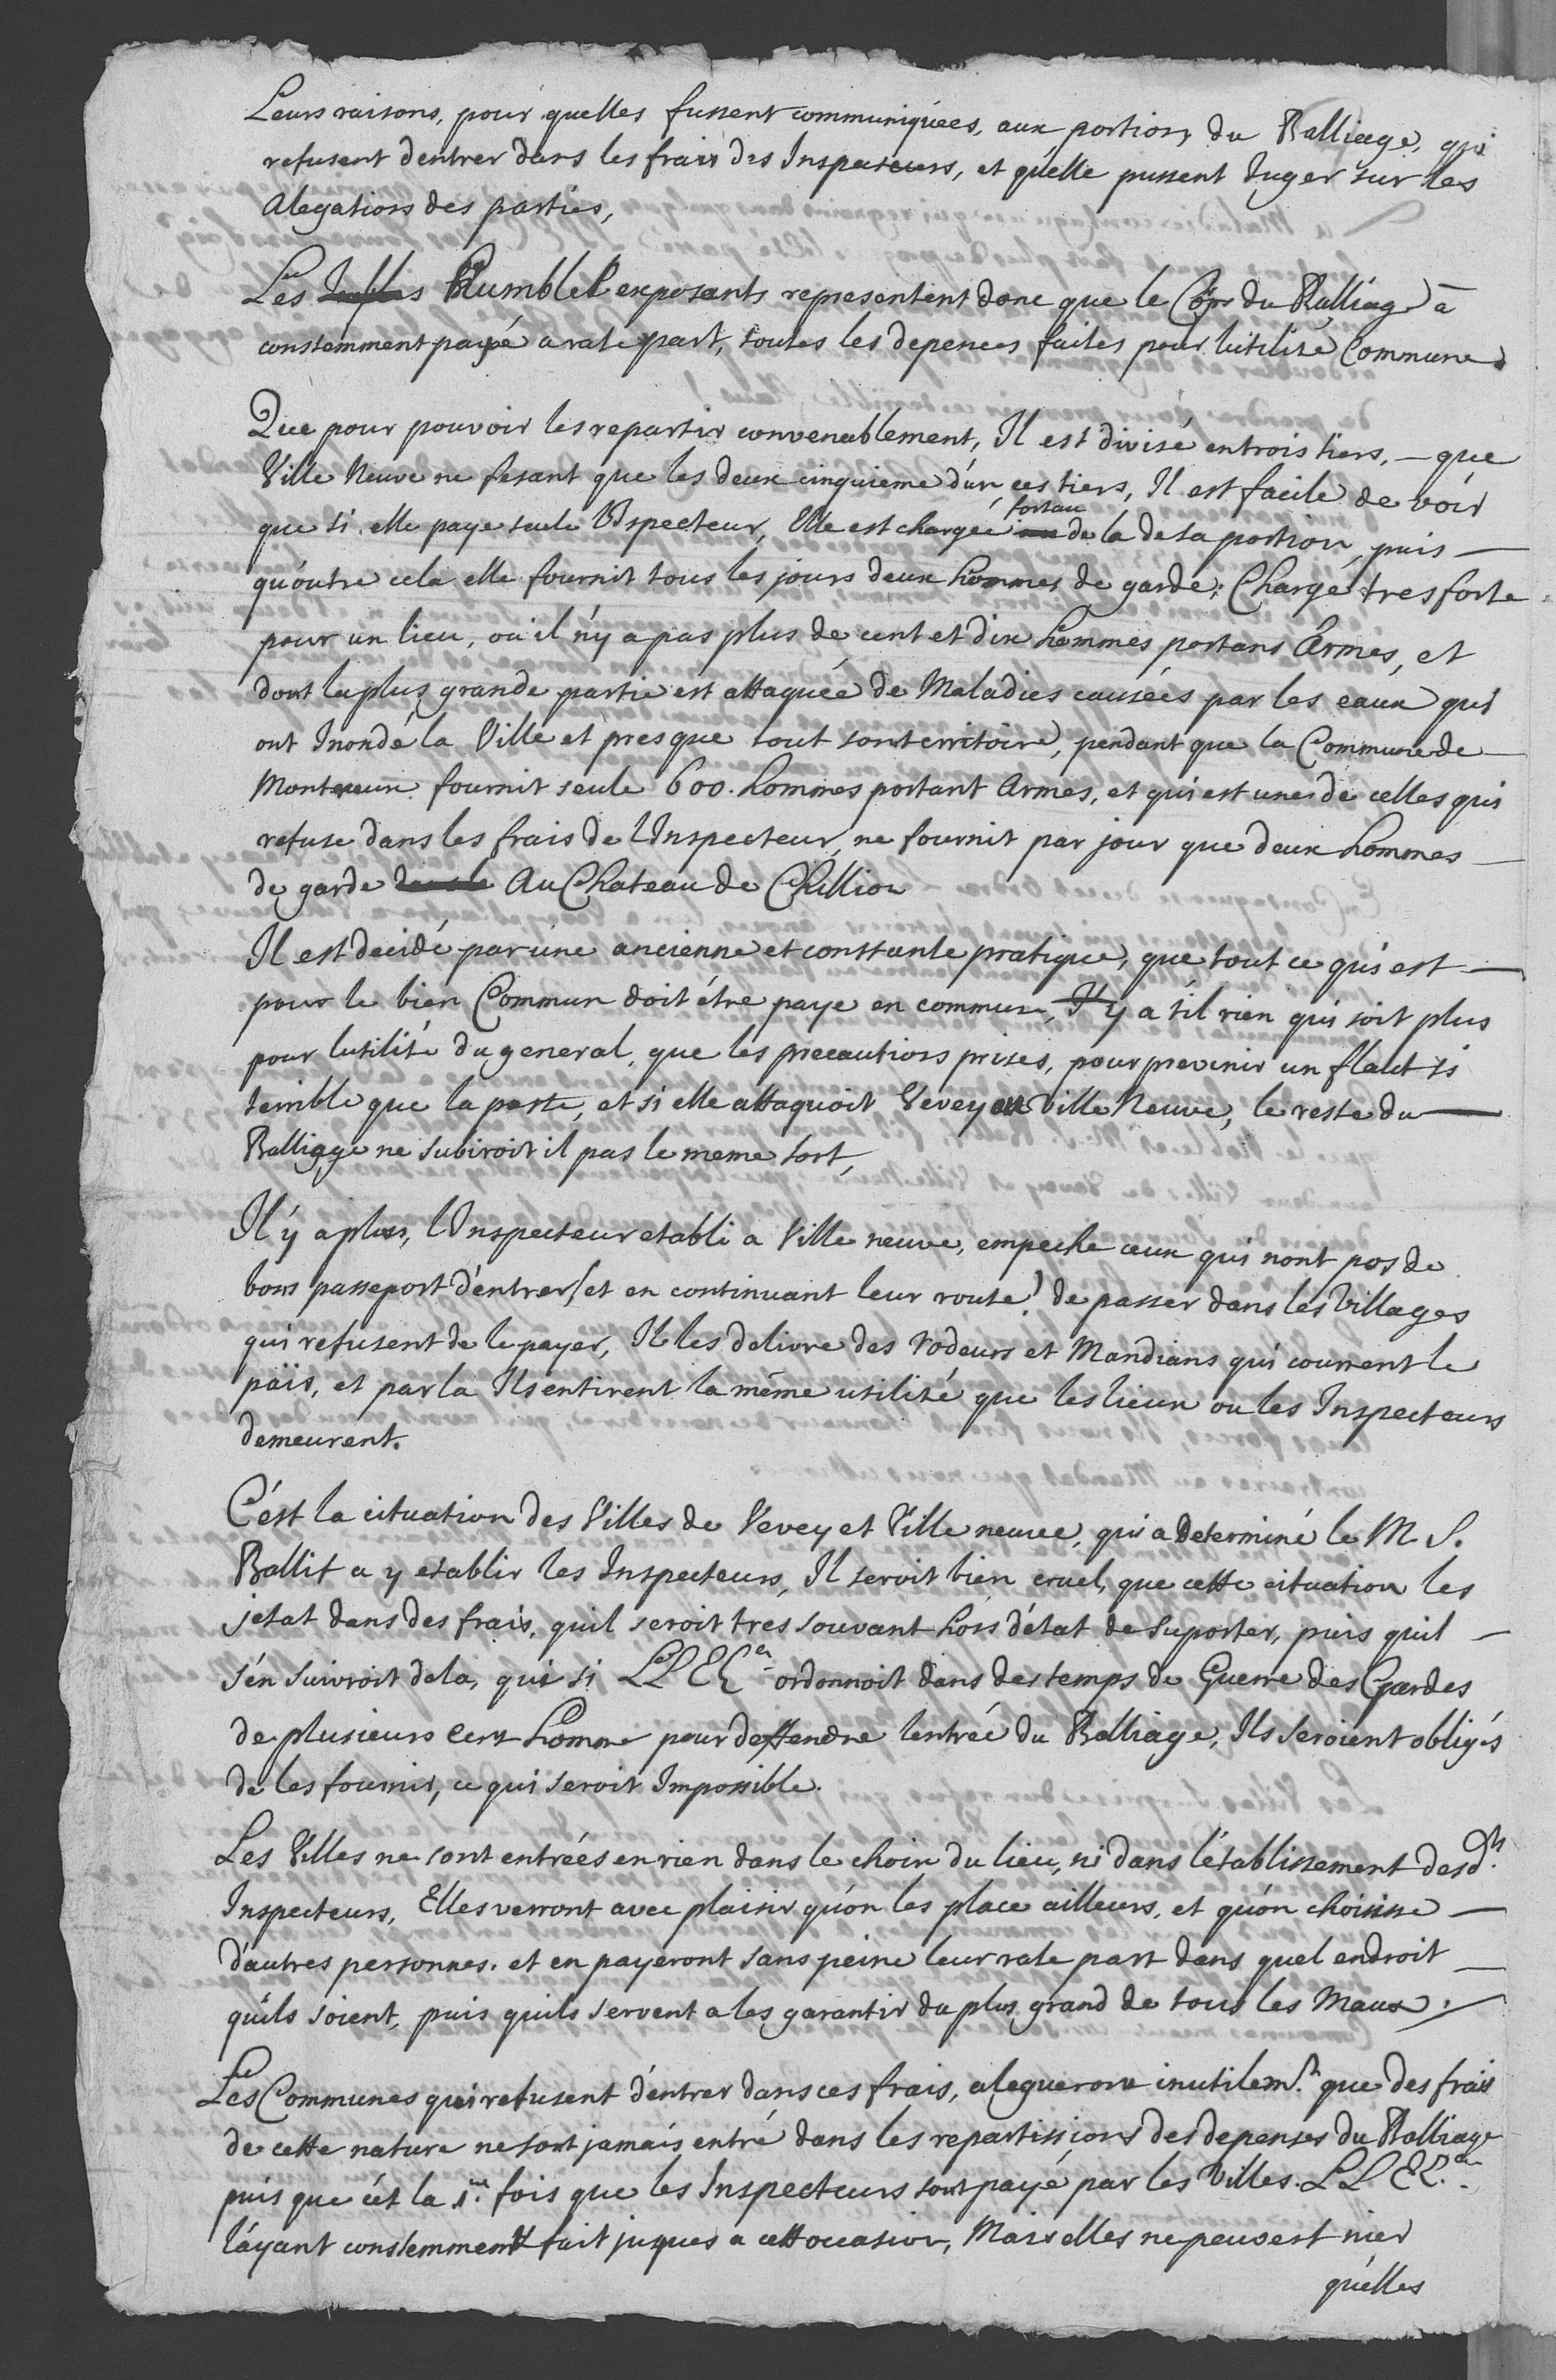 Leurs raisons, pour quelles fussent communiquées, aux portions du Balliage, qui
refusent dentrer dans les frais des Inspecteurs, et quélle pussent Juger sur les
Alegations des parties,
Les Humbles exposants representent donc que le Corps du Balliage à
constemment payé a rate part, toutes les depences faites pour lutilité Commune.
Que pour pouvoir les repartir convenablement, Il est divisé entrois tiers, — que
Ville Neuve ne fesant que les deux cinquieme d'un ces tiers, Il est facile de voir
que si elle paye seule l'Inspecteur, Elle est chargée fort au de la de sa portion, puis —
qu'outre cela elle fournit tous les jours deux hommes de garde; Charge tres forte
pour un lieu, ou il n'y a pas plus de cent et dix hommes portans Armes, et
dont la plus grande partie est attaquée de Maladies causées par les eaux qui
ont Inondé la Ville et presque tout son territoire, pendant que la Commune de —
Monteruux fournit seule 600. hommes portant Armes, et qui est une de celles qui
refuse dans les frais de l'Inspecteur, ne fournit par jour que deux hommes —
de garde Au Chateau de Chillion
Il est decidé par une ancienne et constante pratique, que tout ce qui est —
pour le bien Commun doit étre paye en commun, Il y a t'il rien qui soit plus
pour lutilité du general, que les precautions prises, pour prevenir un flaut si
terrible que la peste, et si elle attaquoit Vevey ou Ville Neuve, le reste du —
Balliage ne subiroit il pas le meme sort,
Il y a plus, l'Inspecteur etabli a Ville neuve, empeche ceux qui nont pas de
bons passeport d'entrer (et en continuant leur route) de passer dans les Villages
qui refusent de le payer, Il les delivre des rodeurs et Mandians qui courrent le
païs, et par la Ils entirent la même utilité que les lieux ou les Inspecteurs
demeurent.
C'ést la cituation des Villes de Vevey et Ville neuve, qui a Determiné le M. S.
Ballif a y etablir les Inspecteurs, Il seroit bien cruel, que cette cituation les
jetat dans des frais, quil seroit tres souvant hors d'état de Suporter, puis quil —
s'én suivroit de la, que si LLEEces ordonnoit dans des temps de Guerre des Gardes
de plusieurs cent homme pour deffendre lentrée du Balliage, Ils seroient obligés
de les fournir, ce qui seroit Impossible.
Les Villes ne sont entrées en rien dans le choix du lieu, ni dans l'établissement desdts
Inspecteurs, Elles verront avec plaisir qu'on les place ailleurs, et qu'on choisisse —
d'autres personnes. et en payeront sans peine leur rate part dans quel endroit —
qu'ils soient, puis quils servent a les garantir du plus grand de tous les Maux.
Les Communes qui refusent d'entrer dans ces frais, alegueront inutilemt. que des frais
de cette nature ne sont jamais entré dans les repartissions des depenses du Balliage
puis que cét la 1re. fois que les Inspecteurs sont payé par les Villes. LLEEces.
l'ayant constemment fait juques a cett occasion, Mais elles ne peuvent nier
qu'elles